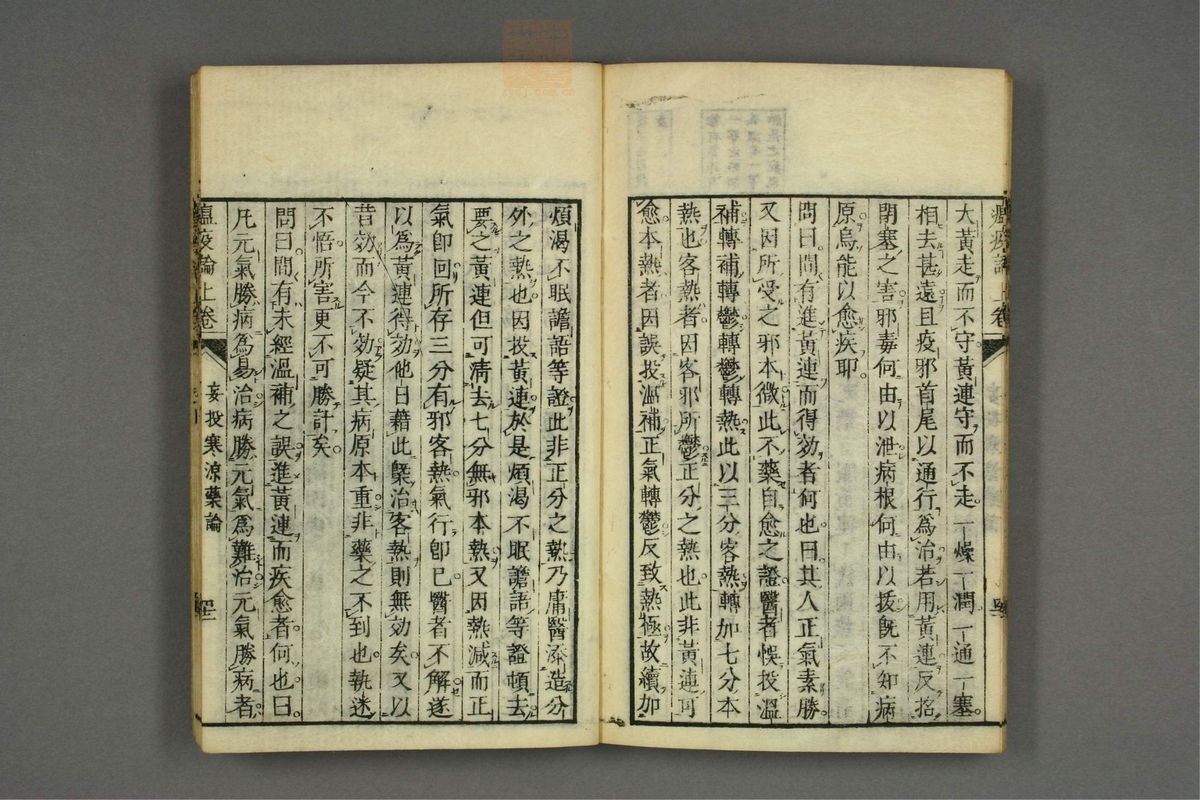 大黃走而不守黃連守而不走一燥一潤一通一塞
相去甚遠且疫邪首尾以通行爲治若用黃連反招
閉塞之害邪毒何由以泄病根何由以拔旣不知病
原烏能以愈疾耶
問曰間有進黃連而得効者何也曰其人正氣素勝
又因所受之邪本微此不藥自愈之證醫者悞投溫
補轉補轉鬱轉鬱轉熱此以三分客熱轉加七分本
熱也客熱者因客邪所鬱正分之熱也此非黃連可
愈本熱者因誤投溫補正氣轉鬱反致熱極故續加
煩渴不眠譫語等證此非正分之熱乃庸醫添造分
外之熱也因投黃連於是煩渴不眠譫語等證頓去
要之黃連但可清去七分無邪本熱又因熱減而正
氣卽回所存三分有邪客熱氣行卽已醫者不解遂
以爲黃連得効他日藉此槩治客熱則無効矣又以
昔効而今不効疑其病原本重非藥之不到也執迷
不悟所害更不可勝計矣
問曰間有未經溫補之誤進黃連而疾愈者何也曰
凡元氣勝病爲易治病勝元氣爲難治元氣勝病者
瘟疫論上卷
妄投寒涼藥論